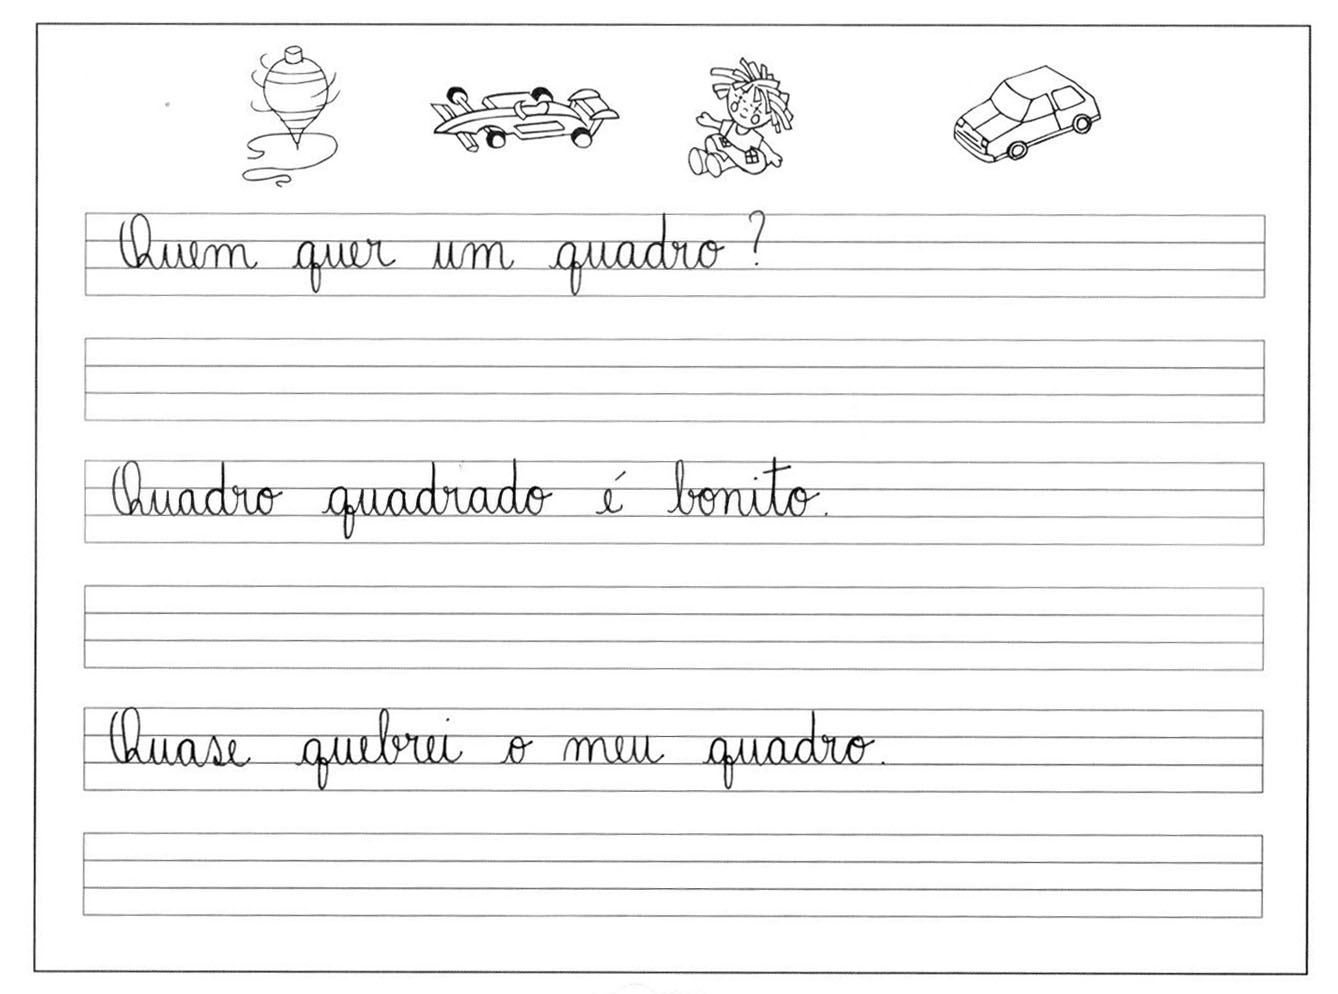 Quem quer um quadro?
Quadro quadrado é bonito.
Quase quebrei o meu quadro.